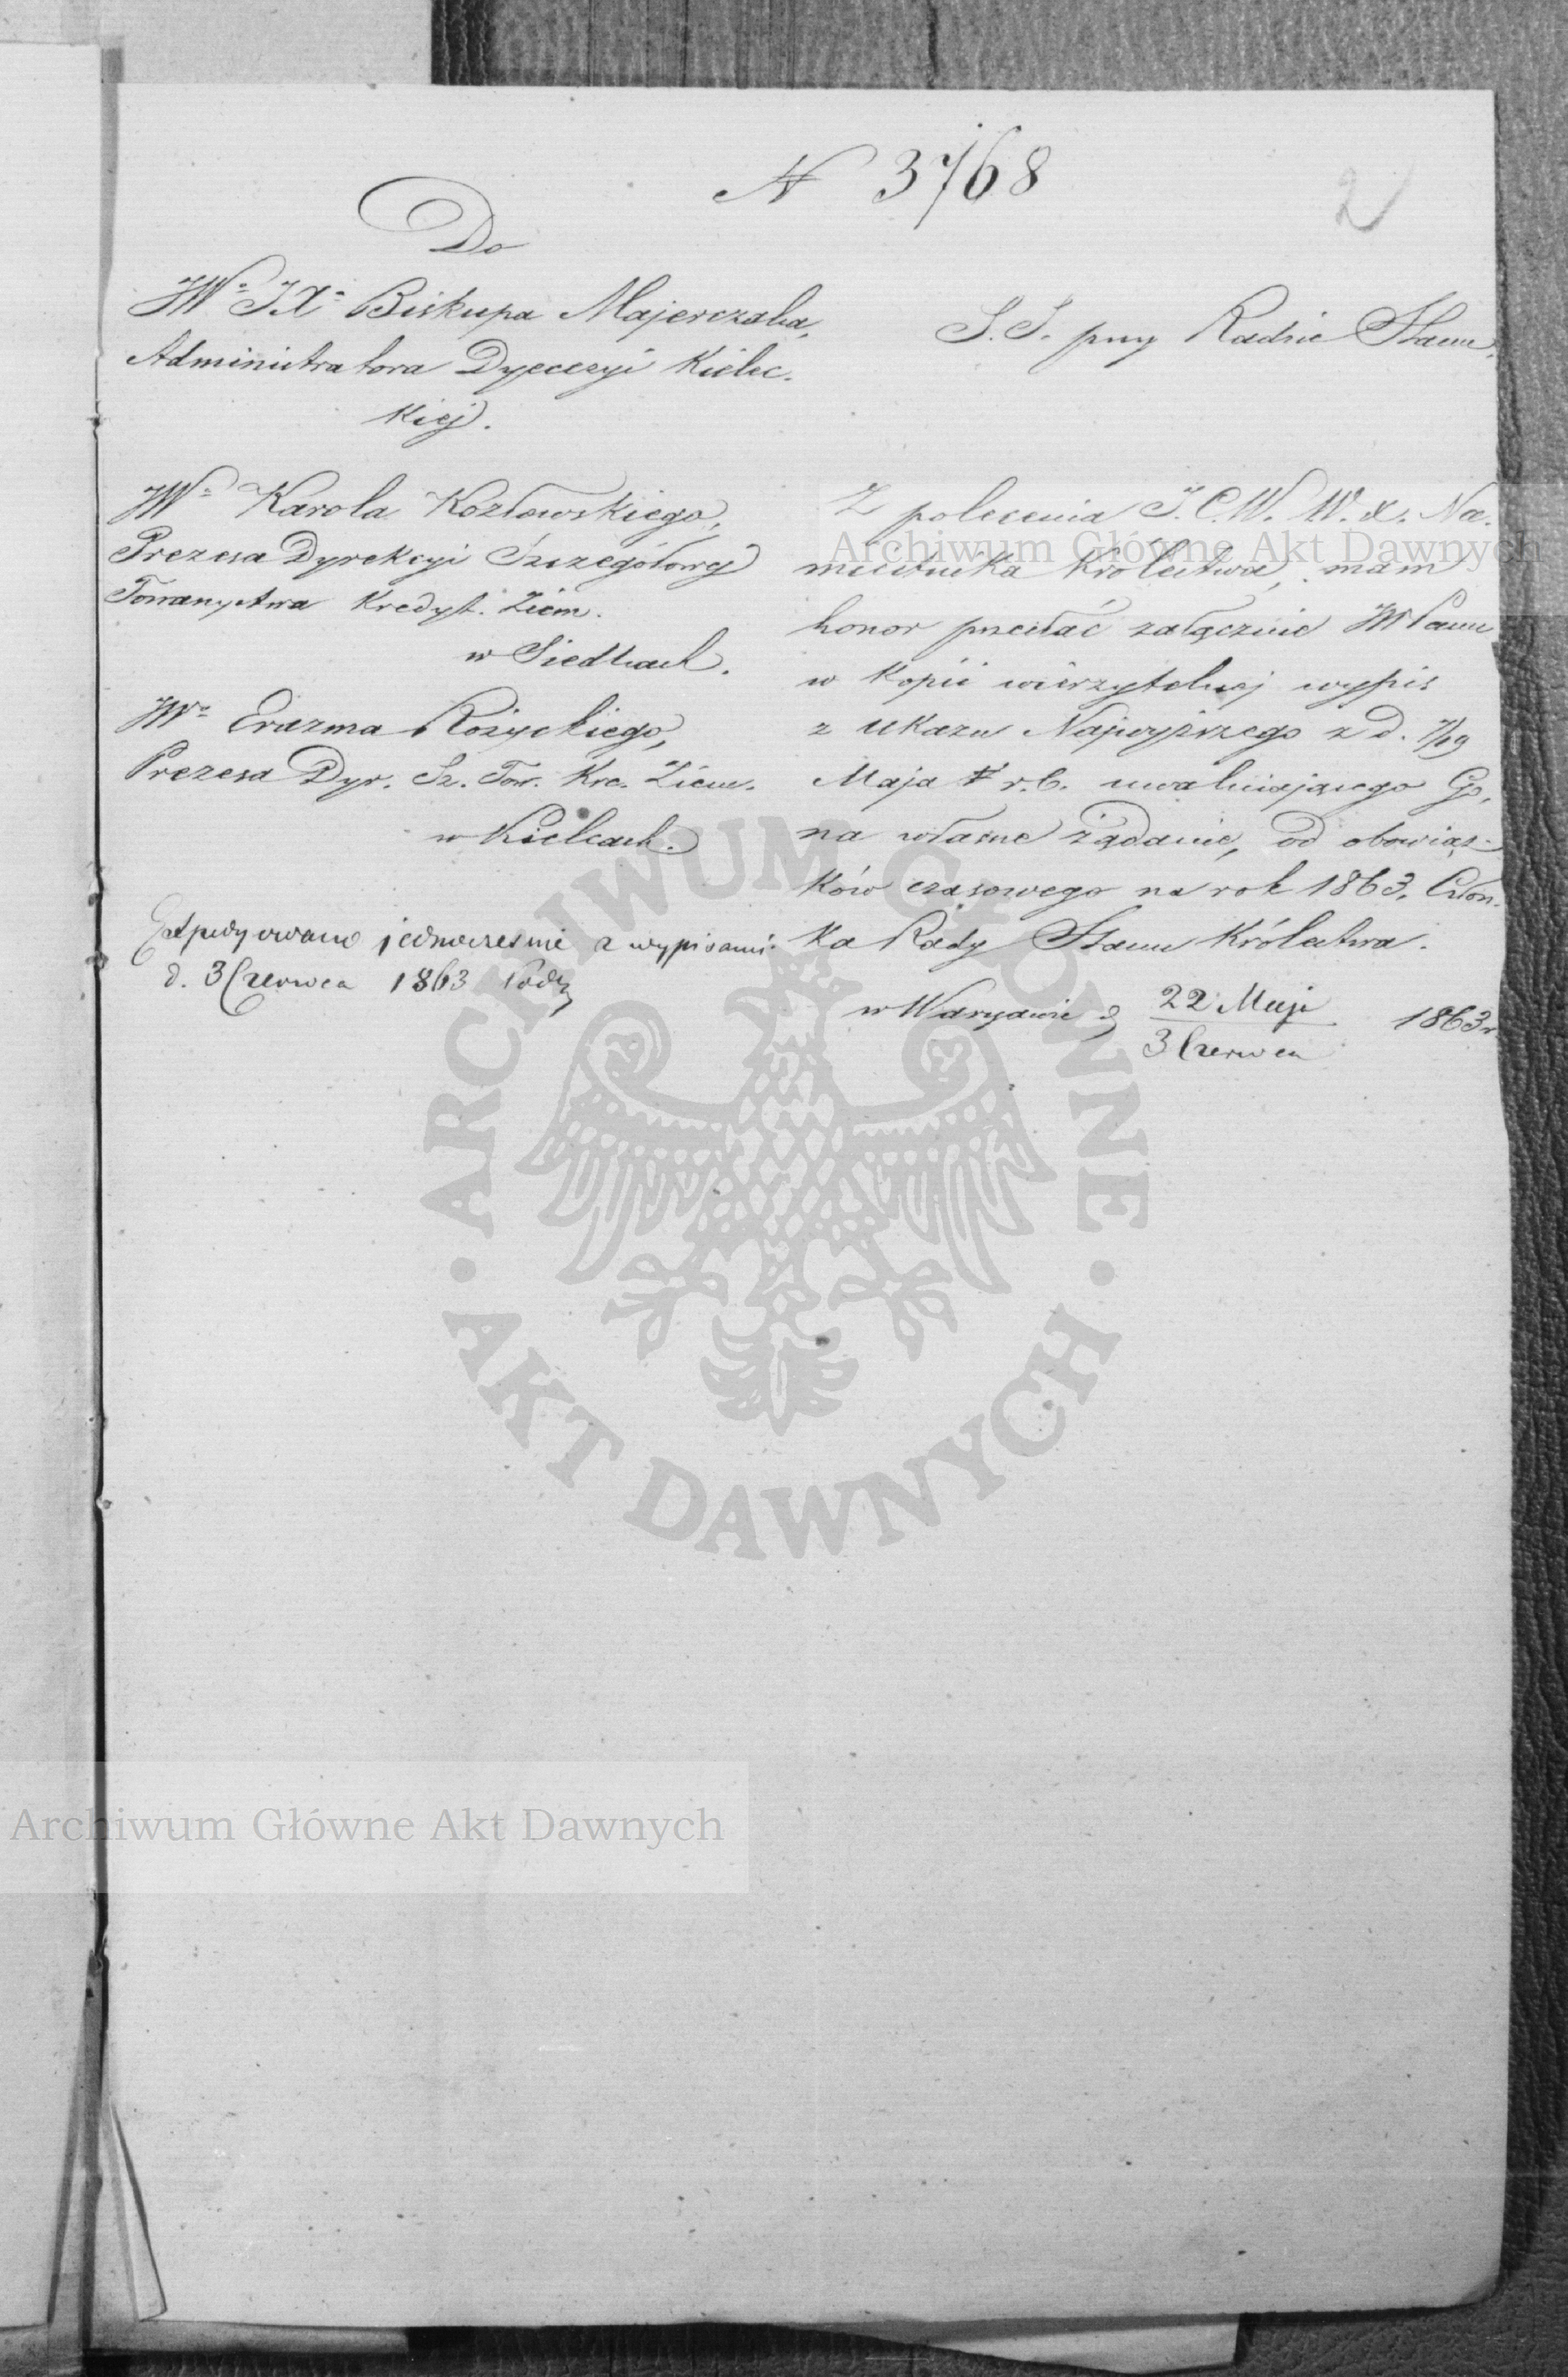 N 3768
2
Do
JW. JX. Biskupa Majerczaka,
Administratora Dyecezyi Kielec-
kiej.
JW. Karola Kozłowskiego,
Prezesa Dyrekcyi Szczegółowej
Towarzystwa Kredyt. Ziem.
w Siedlcach.
JW. Erazma Różyckiego,
Prezesa Dyr. Sz. Tow. Kre. Ziem.
w Kielcach.
Expedyowano jednocześnie z wypisami
d. 3 Czerwca 1863
S. S. przy Radzie Stanu.
Z polecenia J. C. W. W. X. Na-
miestnika Królestwa, mam
honor przesłać załącznie JWPanu
w kopii wierzytelnej wypis
z ukazu Najwyższego z d. 7/19
Maja r. b. uwalniającego Go,
na własne żądanie, od obowiąz-
ków czasowego na rok 1863, Człon-
ka Rady Stanu Królestwa.
w Warszawie d. 22 Maja / 3 Czerwca 1863 r
Archiwum Główne Akt Dawnych
ARCHIWUM GŁÓWNE · AKT DAWNYCH ·
Archiwum Główne Akt Dawnych